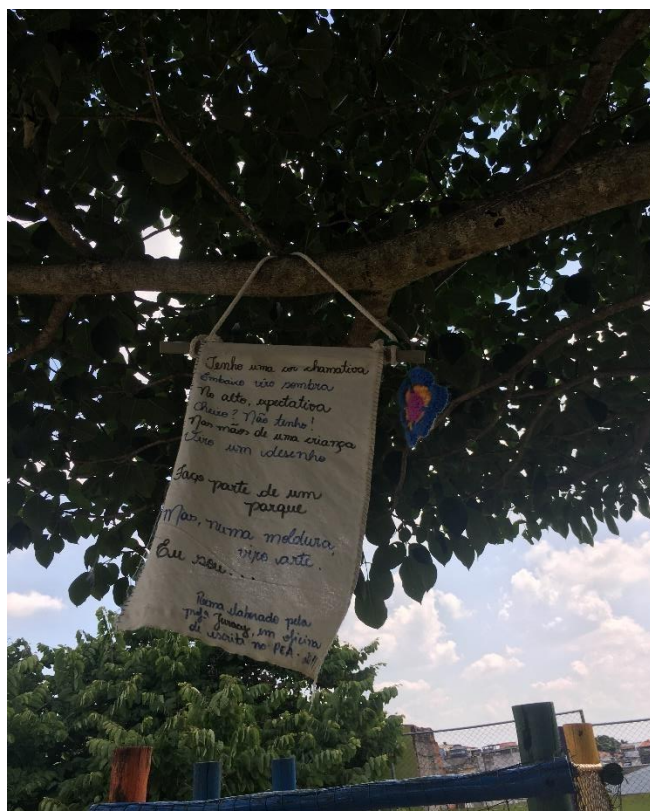 Tenho uma cor chamativa
Embaixo viro sombra
No alto, expectativa
Cheiro? Não tenho!
Nas mãos de uma criança
Viro um desenho
Faço parte de um
parque
Mas, numa moldura,
viro arte.
Eu sou...
Poema elaborado pela
profª Juracy, em oficina
de escrita no PEA.